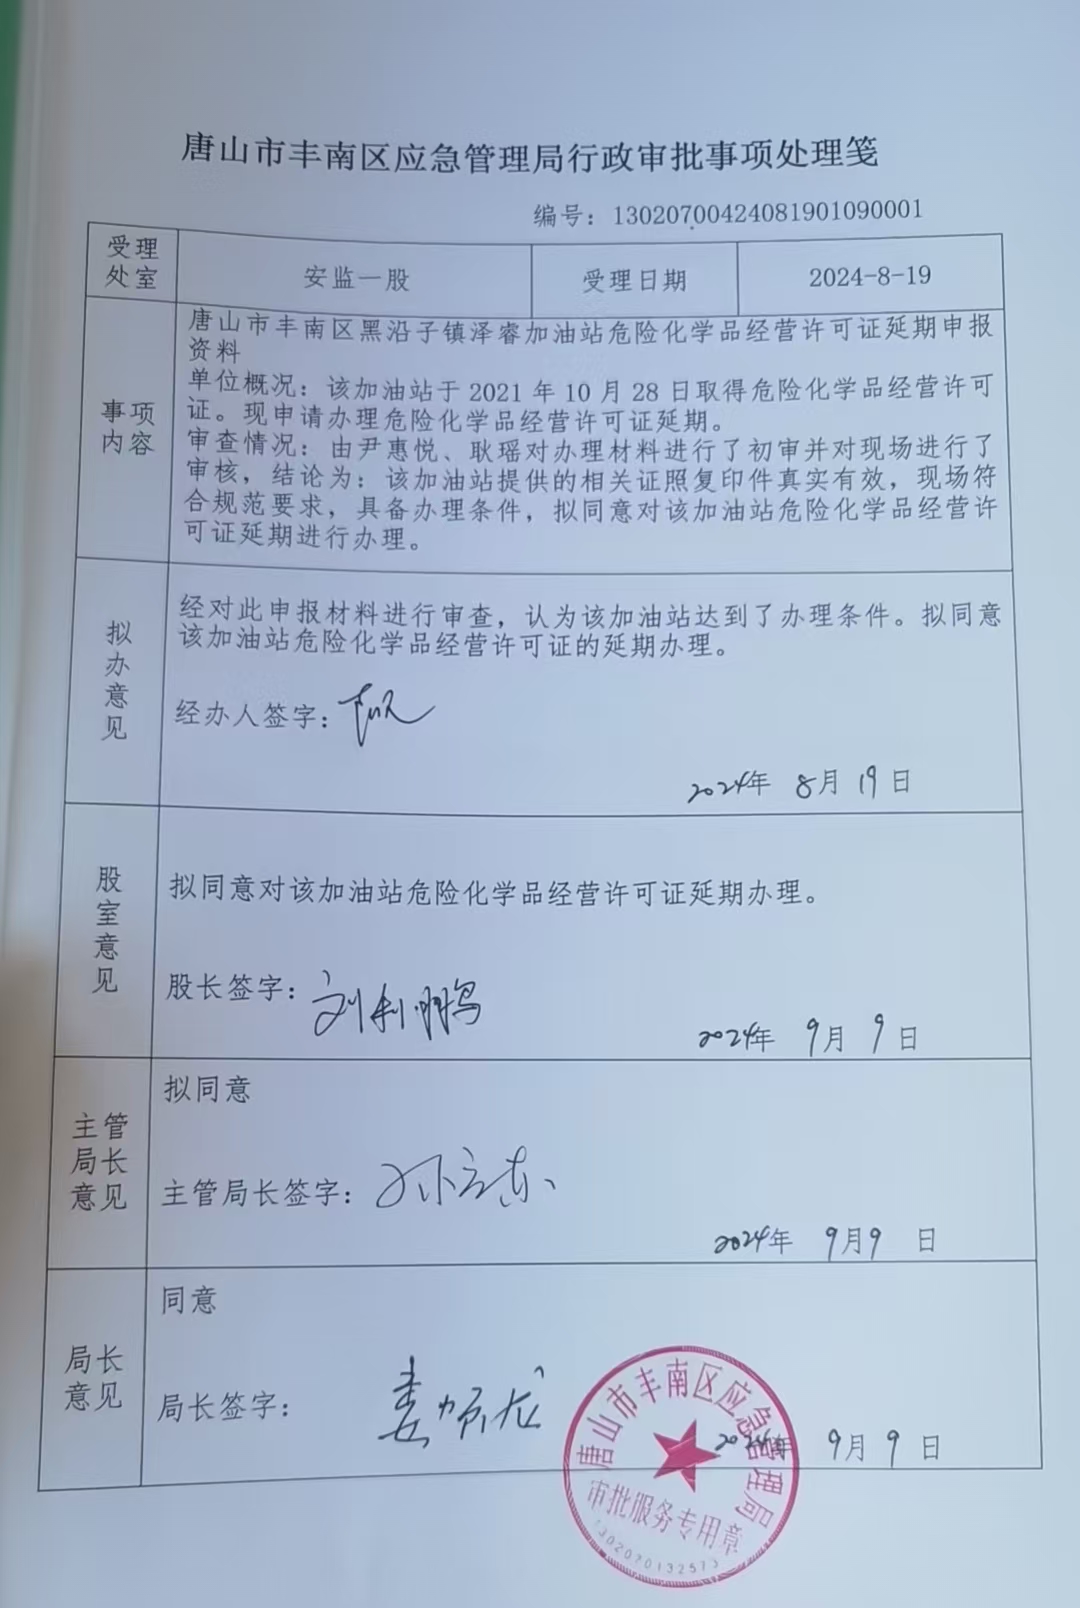 唐山市丰南区应急管理局行政审批事项处理笺
编号：13020700424081901090001
受理
处室
安监一股
受理日期
2024-8-19
事项
内容
唐山市丰南区黑沿子镇泽睿加油站危险化学品经营许可证延期申报
资料
单位概况：该加油站于 2021 年 10 月 28 日取得危险化学品经营许可
证。现申请办理危险化学品经营许可证延期。
审查情况：由尹惠悦、耿瑶对办理材料进行了初审并对现场进行了
审核，结论为：该加油站提供的相关证照复印件真实有效，现场符
合规范要求，具备办理条件，拟同意对该加油站危险化学品经营许
可证延期进行办理。
拟
办
意
见
经对此申报材料进行审查，认为该加油站达到了办理条件。拟同意
该加油站危险化学品经营许可证的延期办理。
经办人签字：
2024年 8月 19日
股
室
意
见
拟同意对该加油站危险化学品经营许可证延期办理。
股长签字：刘利鹏
2024年 9月 9日
主管
局长
意见
拟同意
主管局长签字：孙立东
2024年 9月9 日
局长
意见
同意
局长签字：娄顺龙
2024年 9月 9日
唐山市丰南区应急管理局
审批服务专用章
1302070132573